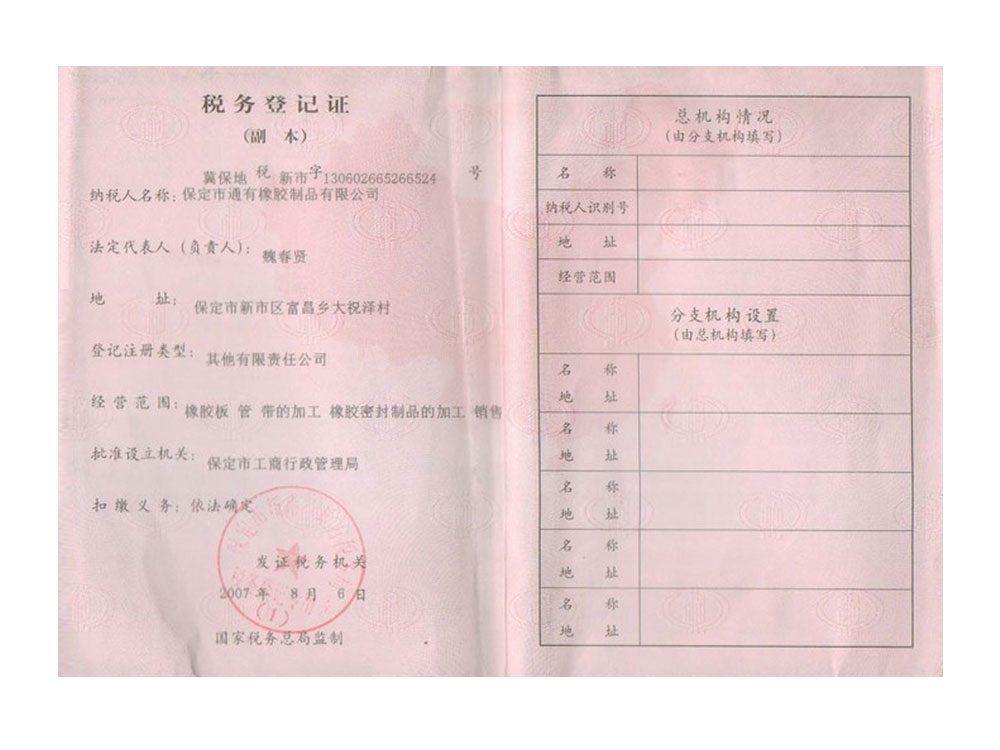 税务登记证
(副 本)
冀保地 税 新市 字 130602665266524 号
纳税人名称: 保定市通有橡胶制品有限公司
法定代表人 (负责人): 魏春贤
地 址: 保定市新市区富昌乡大祝泽村
登记注册类型: 其他有限责任公司
经营范围: 橡胶板 管 带的加工 橡胶密封制品的加工 销售
批准设立机关: 保定市工商行政管理局
扣缴义务: 依法确定
发证税务机关
2007 年 8 月 6 日
(1)
国家税务总局监制
总机构情况
(由分支机构填写)
名 称
纳税人识别号
地 址
经营范围
分支机构设置
(由总机构填写)
名 称
地 址
名 称
地 址
名 称
地 址
名 称
地 址
名 称
地 址